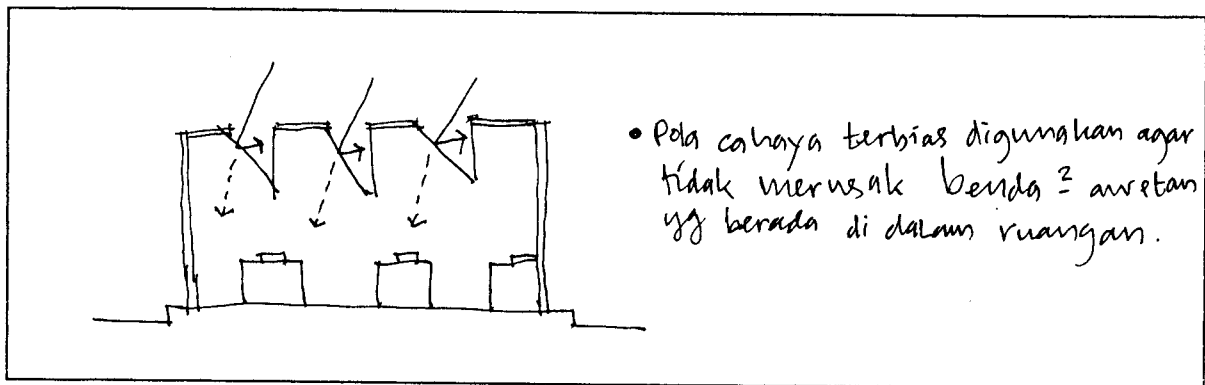 • Pola cahaya terbias digunakan agar
tidak merusak benda² awetan
yg berada di dalam ruangan.